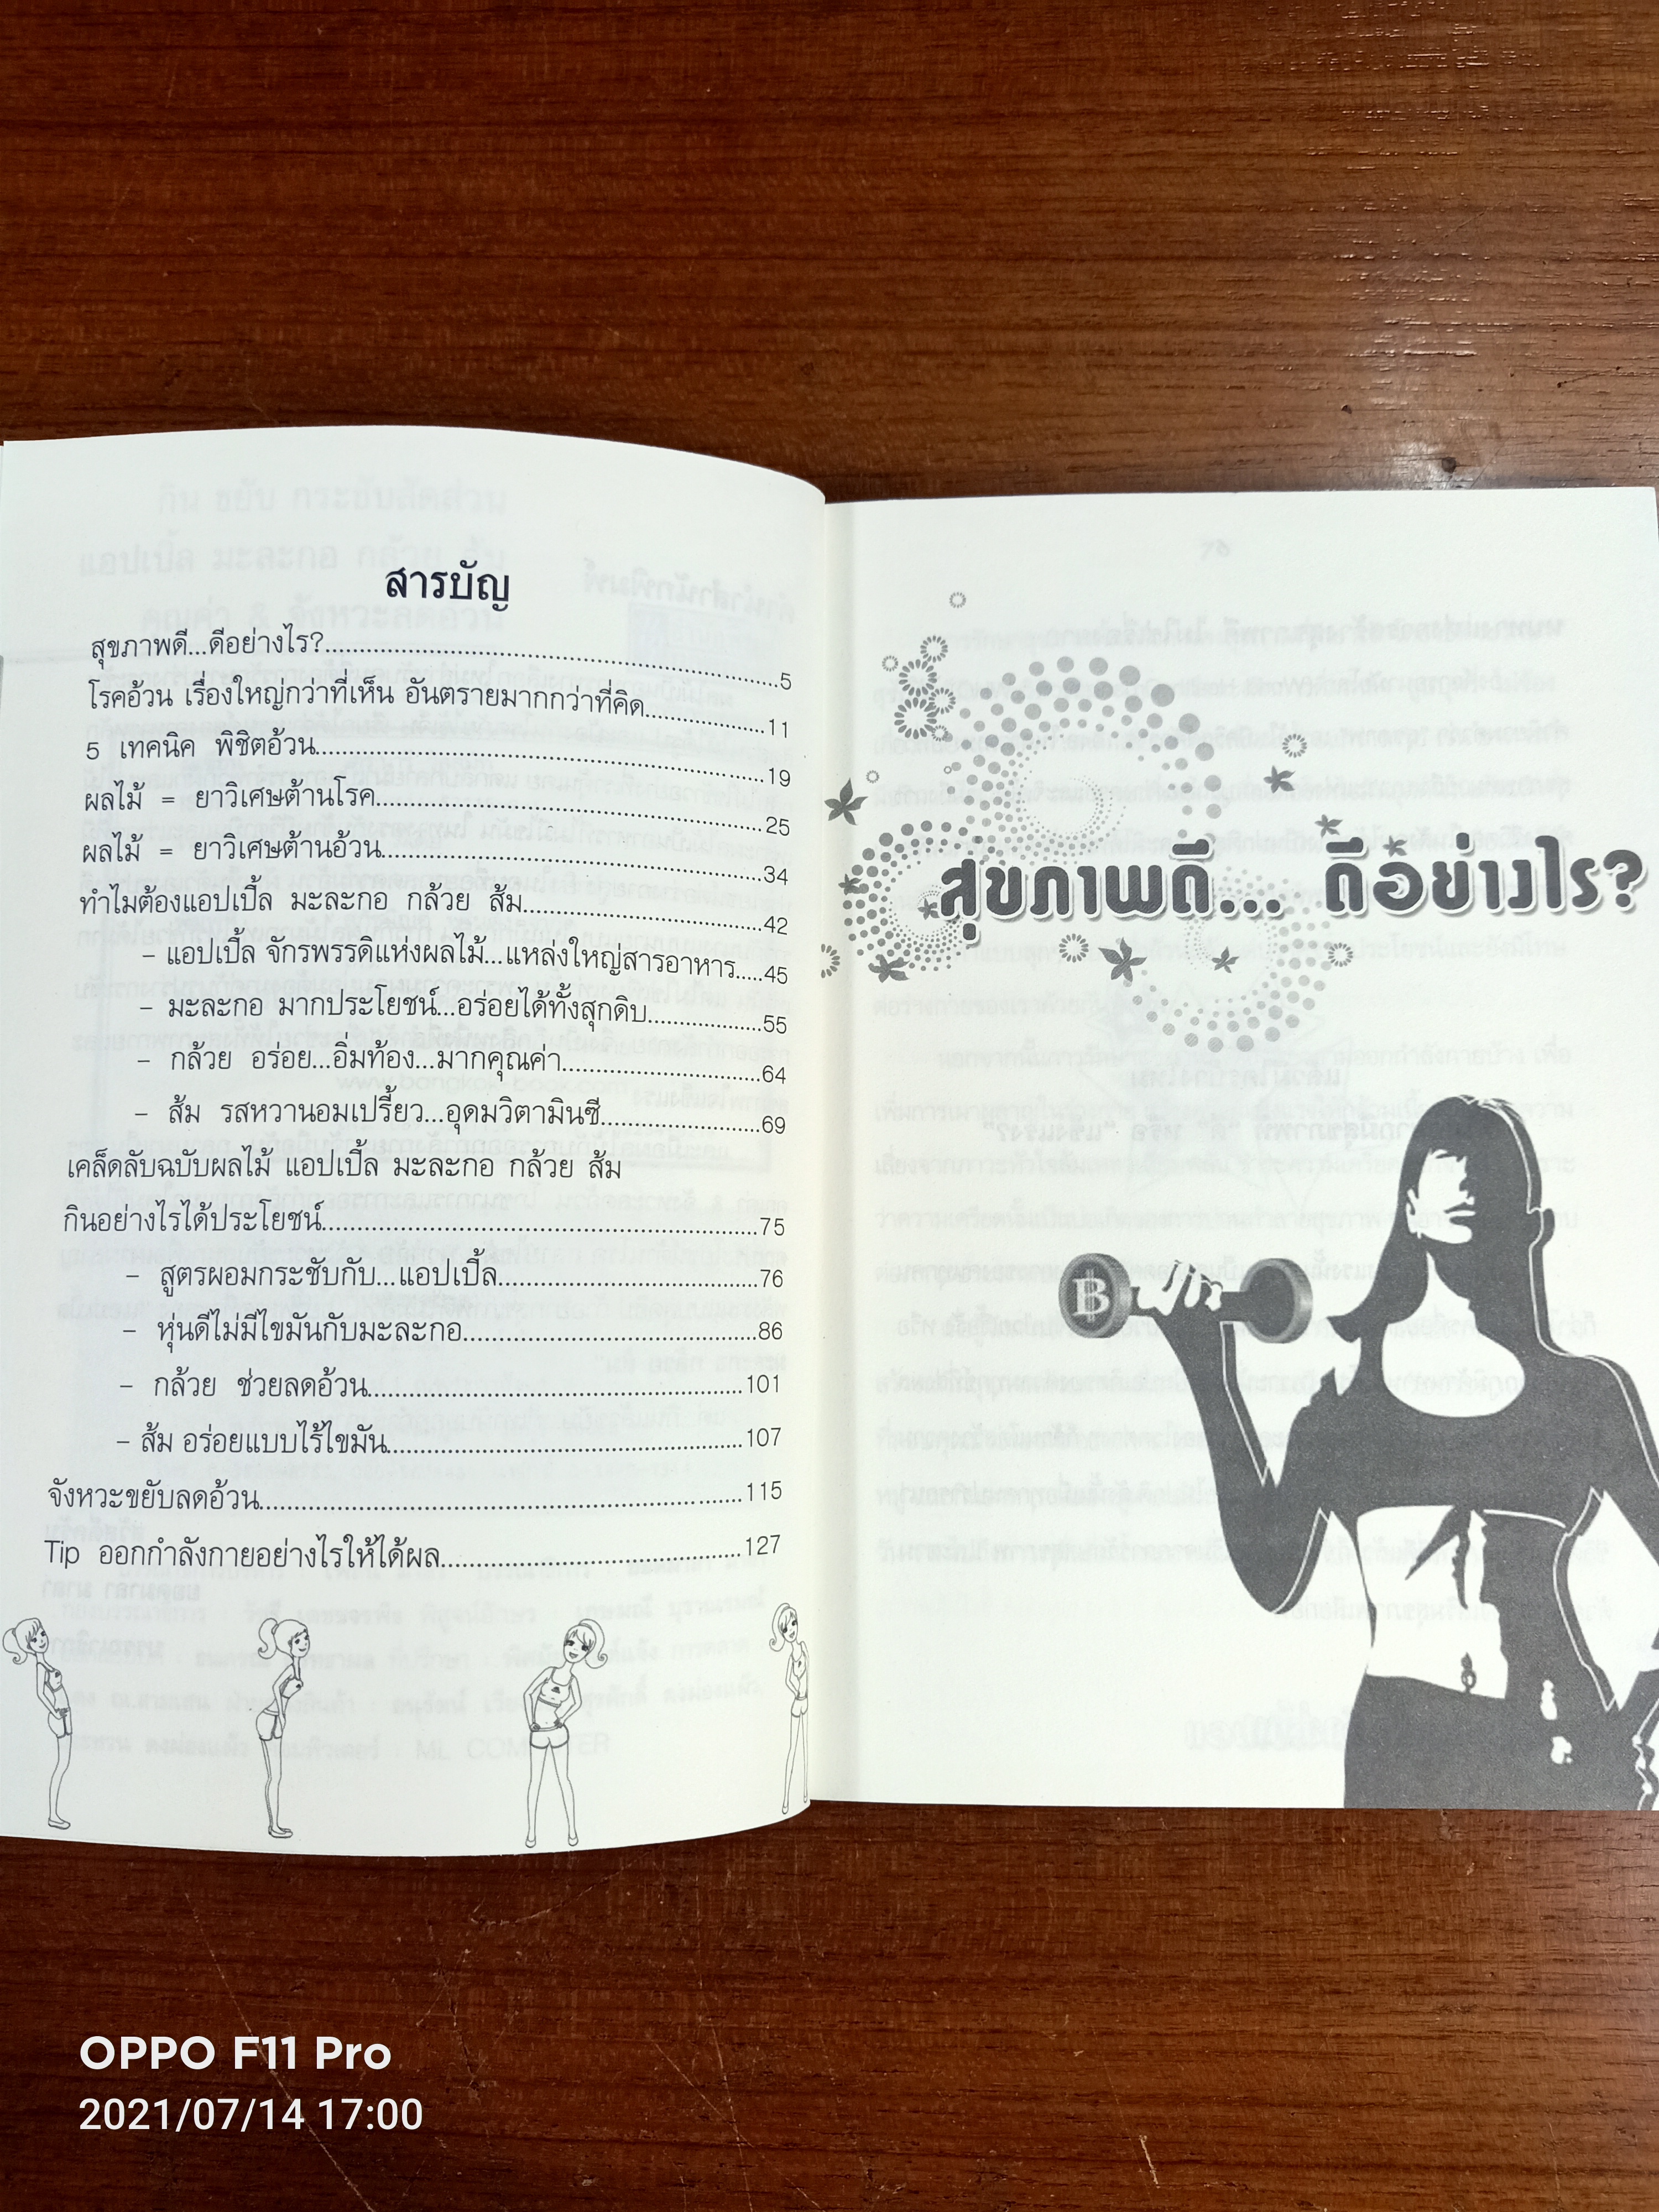 สารบัญ
สุขภาพดี...ดีอย่างไร?...........................................................................5
โรคอ้วน เรื่องใหญ่กว่าที่เห็น อันตรายมากกว่าที่คิด....................11
5 เทคนิค พิชิตอ้วน......................................................................19
ผลไม้ = ยาวิเศษต้านโรค..............................................................25
ผลไม้ = ยาวิเศษต้านอ้วน.............................................................34
ทำไมต้องแอปเปิ้ล มะละกอ กล้วย ส้ม.......................................42
– แอปเปิ้ล จักรพรรดิแห่งผลไม้...แหล่งใหญ่สารอาหาร.....45
– มะละกอ มากประโยชน์...อร่อยได้ทั้งสุกดิบ..................55
– กล้วย อร่อย...อิ่มท้อง...มากคุณค่า................................64
– ส้ม รสหวานอมเปรี้ยว...อุดมวิตามินซี.........................69
เคล็ดลับฉบับผลไม้ แอปเปิ้ล มะละกอ กล้วย ส้ม
กินอย่างไรได้ประโยชน์...................................................................75
– สูตรผอมกระชับกับ...แอปเปิ้ล........................................76
– หุ่นดีไม่มีไขมันกับมะละกอ.............................................86
– กล้วย ช่วยลดอ้วน.........................................................101
– ส้ม อร่อยแบบไร้ไขมัน......................................................107
จังหวะขยับลดอ้วน..........................................................................115
Tip ออกกำลังกายอย่างไรให้ได้ผล..............................................127
สุขภาพดี... ดีอย่างไร?
B
OPPO F11 Pro
2021/07/14 17:00